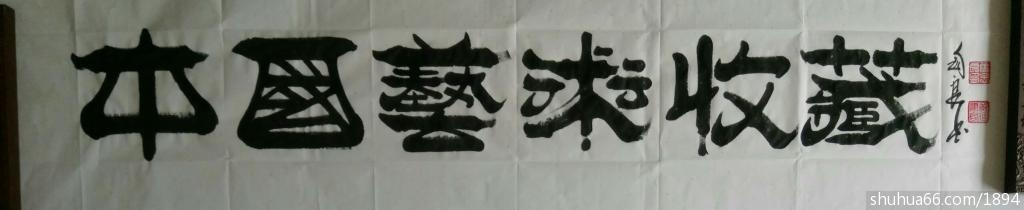 中国藝術收藏
shuhua66.com/1894